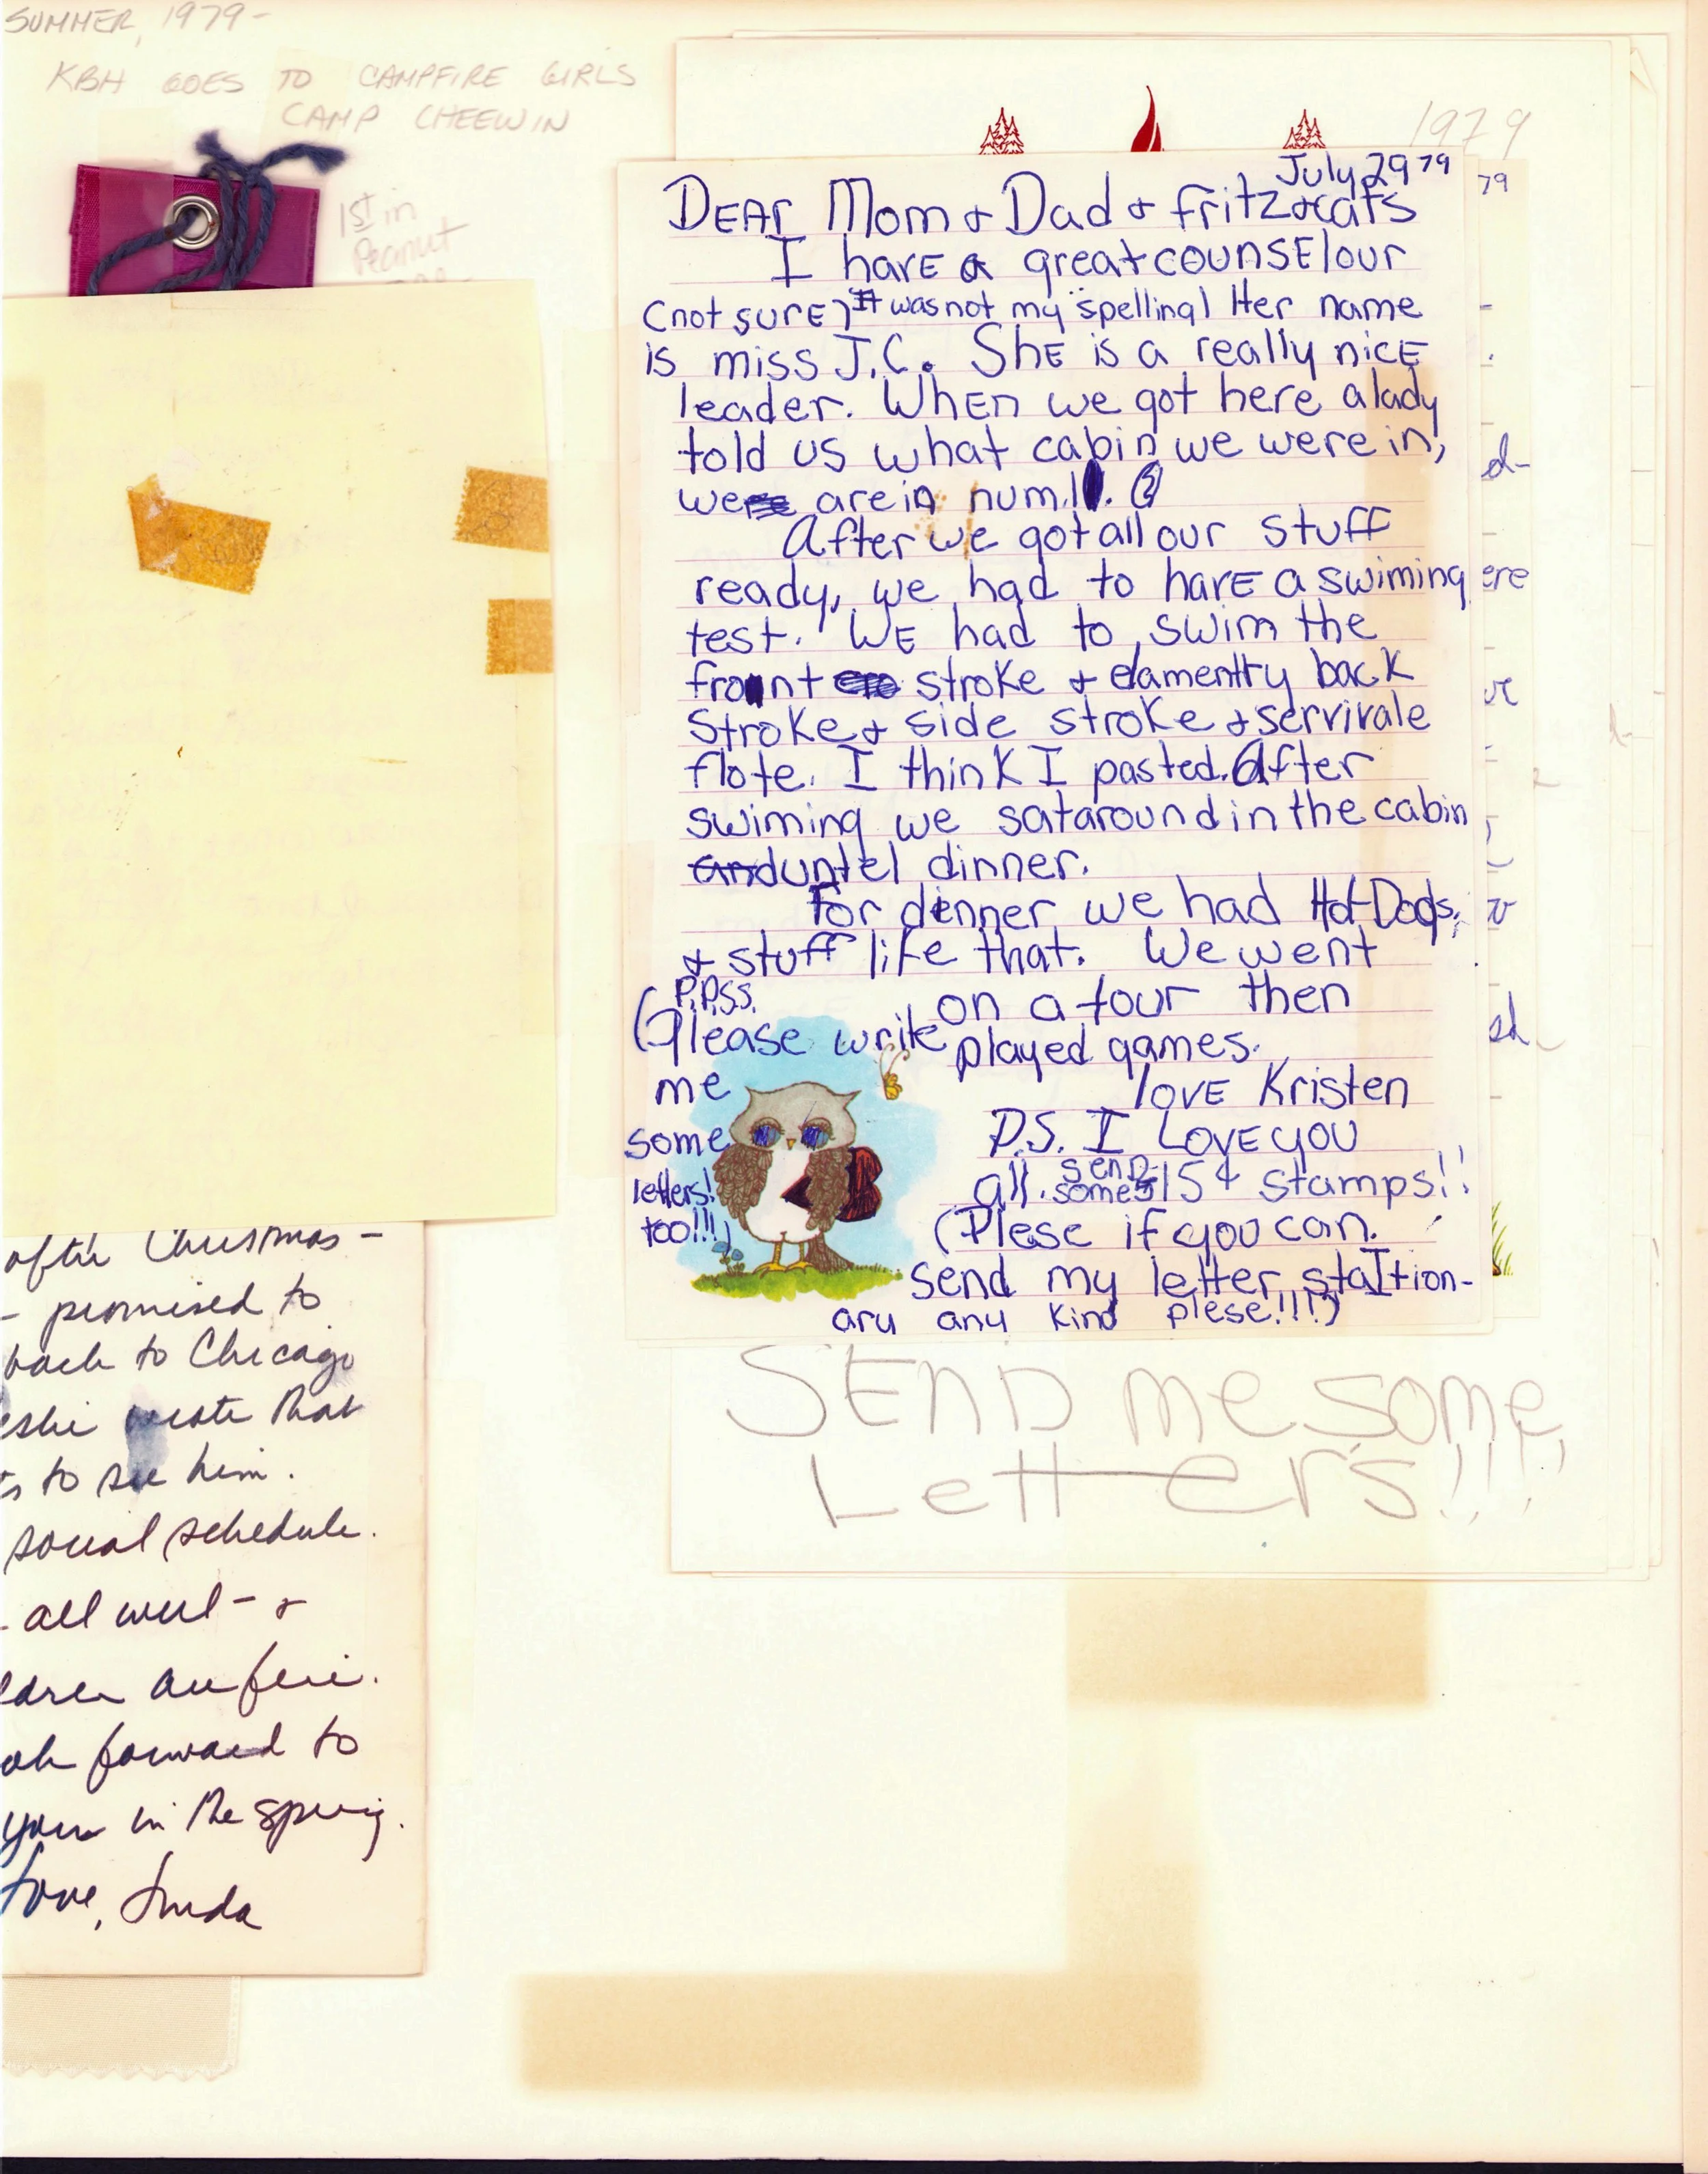 SUMMER, 1979-
KBH GOES TO CAMPFIRE GIRLS
CAMP CHEEWIN
1st in
Peanut
1979
79
July 29 79
DEAr Mom & Dad & fritz & cats
I havE a great counsElour
(not surE) It was not my spelling) Her name
is miss J.C. ShE is a really nicE
leader. WhEn we got here a lady
told us what cabin we were in,
we are in num. 1.
After we got all our stuff
ready, we had to havE a swiming
test. WE had to swim the
front stroke & elamentty back
stroke & side stroke & servivale
flote. I think I pasted. After
swiming we sat around in the cabin
and untel dinner.
For dinner we had Hot Dogs,
& stuff like that. We went
on a tour then
played games.
lovE Kristen
P.S. I LovE you
all. send some 15¢ stamps!!
(Plese if you can.
send my letter staItion-
ary any kind plese!!!!)
P.P.S.S.
(Please write
me
some
letters!
too!!!)
d-
ere
ve
w
ed
SEND me some
Letters!!!!
after Christmas -
- promised to
back to Chicago
eslie wrote that
ts to see him.
social schedule.
- all well - &
ldren are fine.
ok forward to
your in the spring.
Love, Linda